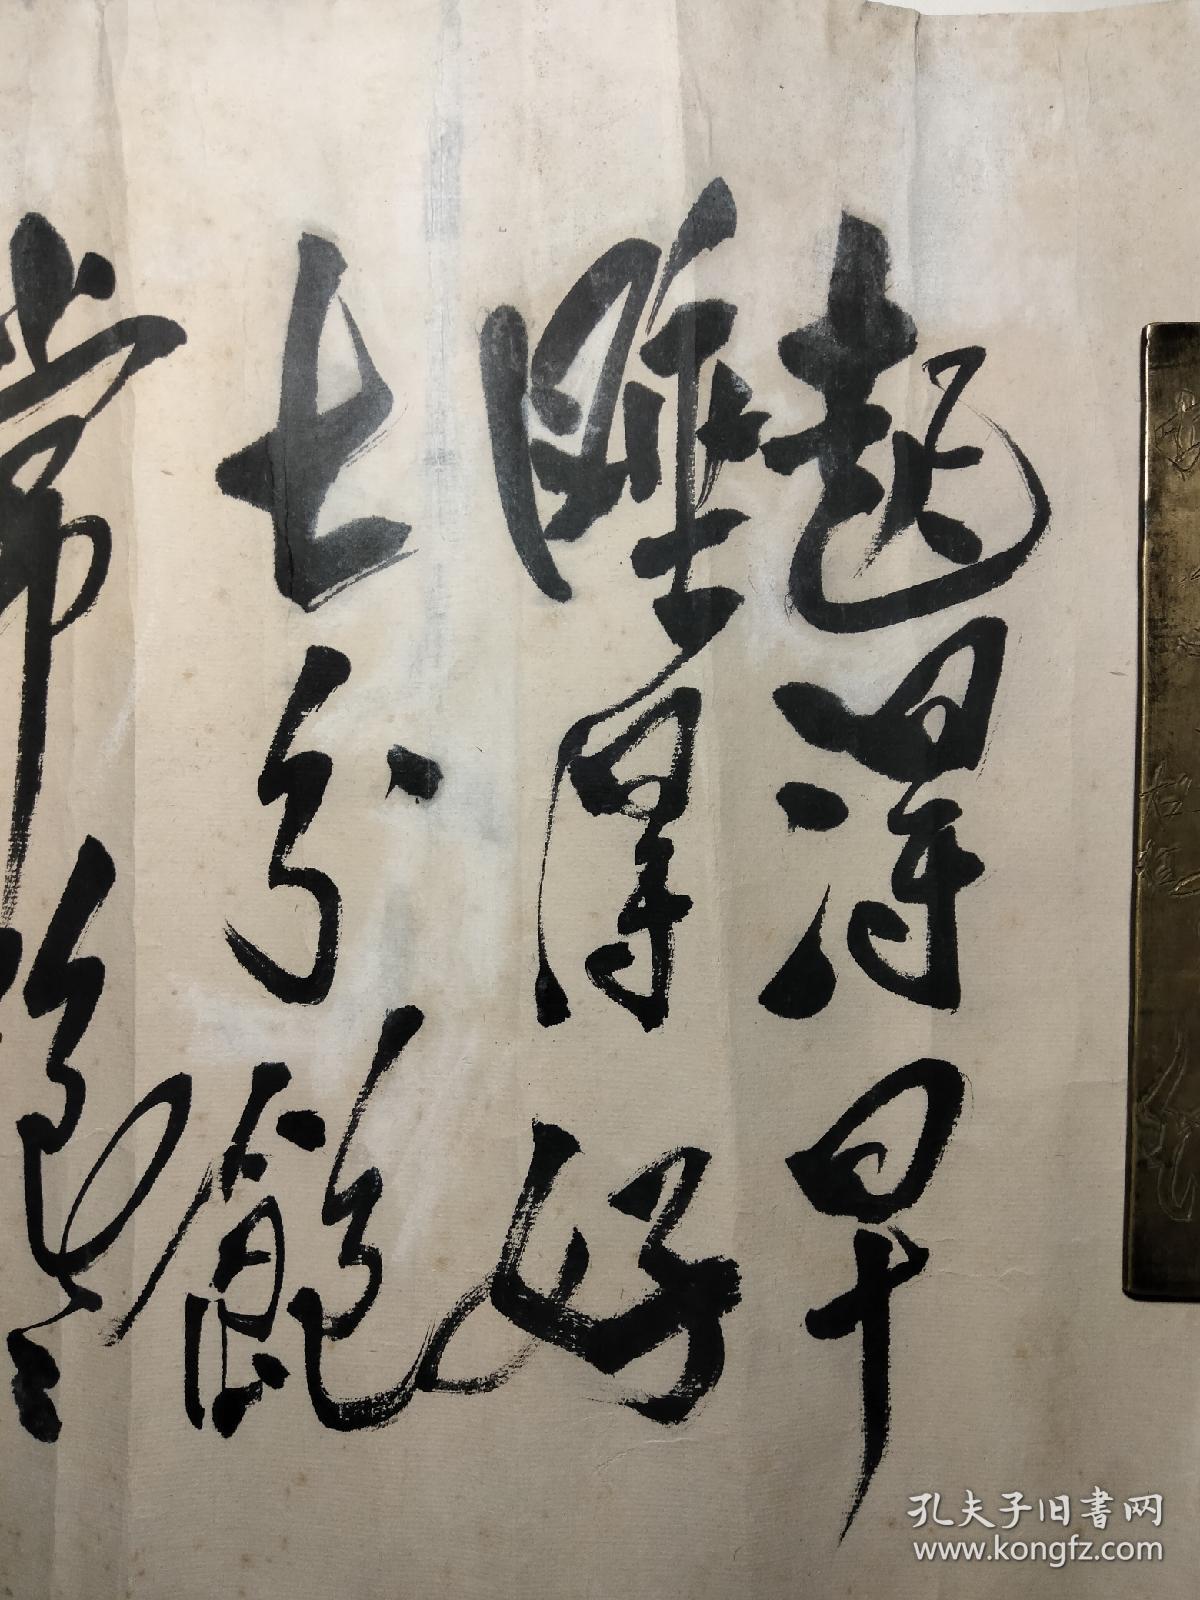 起得早
睡得好
七分飽
常跑
孔夫子旧書网
www.kongfz.com